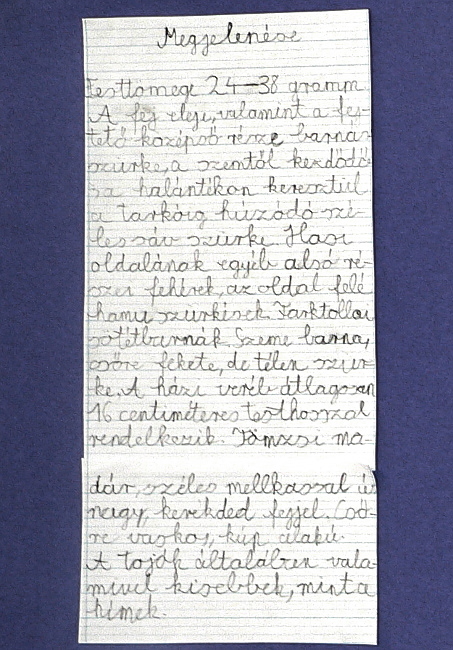 Megjelenése
Testtömege 24-38 gramm.
A fej eleje, valamint a fej-
tető középső része barnás-
szürke, a szemtől kezdődő
s a halántékon keresztül
a tarkóig húzódó szé-
les sáv szürke. Hasi
oldalának egyéb alsó ré-
szei fehérek, az oldal felé
hamu szürkések. Farktollai
sötétbarnák. Szeme barna,
csőre fekete, de télen szür-
ke. A házi veréb átlagosan
16 centiméteres testhosszal
rendelkezik. Tömzsi ma-
dár, széles mellkassal és
nagy, kerekded fejjel. Cső-
re vaskos, kúp alakú.
A tojók általában vala-
mivel kisebbek, mint a
hímek.